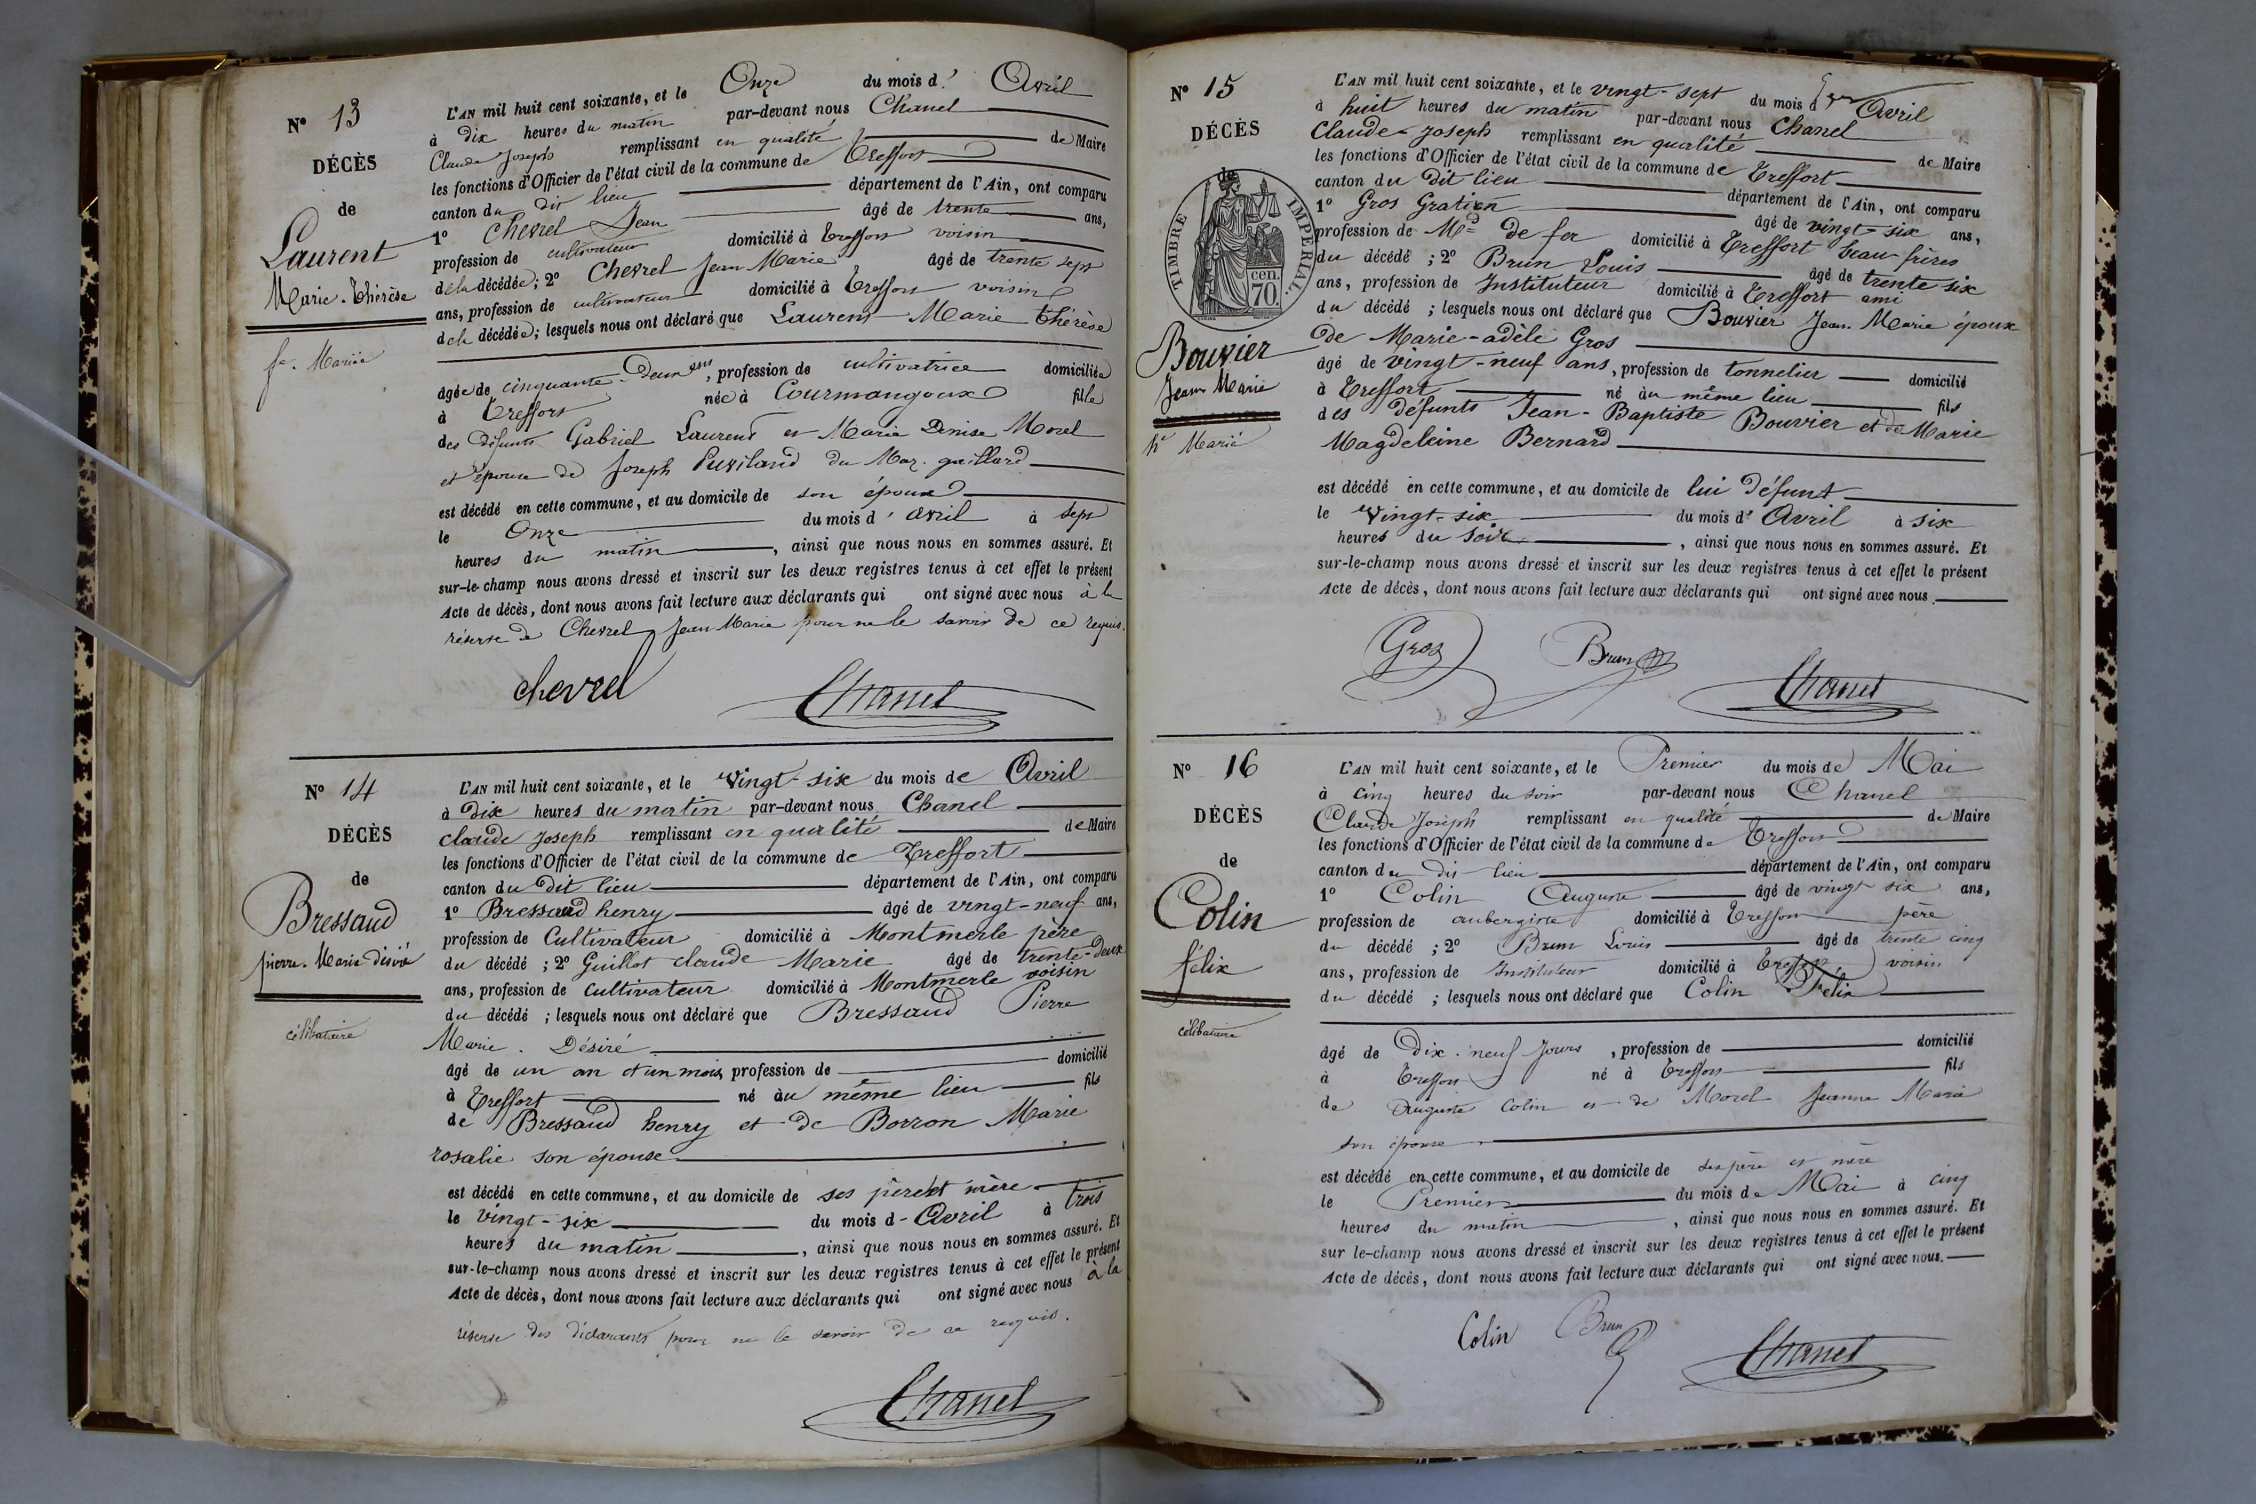 N° 13
DÉCÈS
de
Laurent
Marie-Thérèse
fe. Mariée
L'AN mil huit cent soixante, et le Onze du mois d' Avril
à dix heures du matin par-devant nous Chanel
Claude Joseph remplissant en qualité de Maire
les fonctions d'Officier de l'état civil de la commune de Treffort
canton du dit lieu département de l'Ain, ont comparu
1° Chevrel Jean âgé de trente ans,
profession de cultivateur domicilié à Treffort voisin
de la décédée; 2° Chevrel Jean Marie âgé de trente sept
ans, profession de cultivateur domicilié à Treffort voisin
de la décédée; lesquels nous ont déclaré que Laurent Marie Thérèse
âgée de cinquante-deux ans, profession de cultivatrice domiciliée
à Treffort née à Courmangoux fille
des défunts Gabriel Laurent et Marie Denise Morel
et épouse de Joseph Puvilland du Maz. gaillard
est décédé en cette commune, et au domicile de son époux
le Onze du mois d' avril à sept
heures du matin, ainsi que nous nous en sommes assuré. Et
sur-le-champ nous avons dressé et inscrit sur les deux registres tenus à cet effet le présent
Acte de décès, dont nous avons fait lecture aux déclarants qui ont signé avec nous à la
réserve de Chevrel Jean Marie pour ne le savoir de ce requis.
chevrel Chanel
N° 14
DÉCÈS
de
Bressaud
pierre. Marie désiré
célibataire
L'AN mil huit cent soixante, et le vingt-six du mois de Avril
à dix heures du matin par-devant nous Chanel
claude joseph remplissant en qualité de Maire
les fonctions d'Officier de l'état civil de la commune de Treffort
canton du dit lieu département de l'Ain, ont comparu
1° Bressaud henry âgé de vingt-neuf ans,
profession de Cultivateur domicilié à Montmerle père
du décédé; 2° Guillot claude Marie âgé de trente-deux
ans, profession de cultivateur domicilié à Montmerle voisin
du décédé; lesquels nous ont déclaré que Bressaud Pierre
Marie. Désiré
âgé de un an et un mois, profession de domicilié
à Treffort né au même lieu fils
de Bressaud henry et de Borron Marie
rosalie son épouse
est décédé en cette commune, et au domicile de ses père et mère
le vingt-six du mois d-Avril à trois
heures du matin, ainsi que nous nous en sommes assuré. Et
sur-le-champ nous avons dressé et inscrit sur les deux registres tenus à cet effet le présent
Acte de décès, dont nous avons fait lecture aux déclarants qui ont signé avec nous à la
réserve des déclarants pour ne le savoir de ce requis.
Chanel
N° 15
DÉCÈS
de
TIMBRE IMPERIAL.
70 cen.
Bouvier
Jean Marie
he Marié
L'AN mil huit cent soixante, et le vingt-sept du mois d Avril
à huit heures du matin par-devant nous Chanel
Claude-joseph remplissant en qualité de Maire
les fonctions d'Officier de l'état civil de la commune de Treffort
canton du dit lieu département de l'Ain, ont comparu
1° Gros Gratien âgé de vingt-six ans,
profession de Md de fer domicilié à Treffort beau-frères
du décédé; 2° Brun Louis âgé de trente six
ans, profession de Instituteur domicilié à Treffort ami
du décédé; lesquels nous ont déclaré que Bouvier Jean Marie époux
de Marie-adèle Gros
âgé de vingt-neuf ans, profession de tonnelier domicilié
à Treffort né au même lieu fils
des défunts Jean-Baptiste Bouvier et de Marie
Magdeleine Bernard
est décédé en cette commune, et au domicile de lui défunt
le vingt-six du mois d' Avril à six
heures du soir, ainsi que nous nous en sommes assuré. Et
sur-le-champ nous avons dressé et inscrit sur les deux registres tenus à cet effet le présent
Acte de décès, dont nous avons fait lecture aux déclarants qui ont signé avec nous.
Gros Brun Chanel
N° 16
DÉCÈS
de
Colin
félix
célibataire
L'AN mil huit cent soixante, et le Premier du mois de Mai
à cinq heures du soir par-devant nous Chanel
Claude Joseph remplissant en qualité de Maire
les fonctions d'Officier de l'état civil de la commune de Treffort
canton du dit lieu département de l'Ain, ont comparu
1° Colin Auguste âgé de vingt six ans,
profession de aubergiste domicilié à Treffort père
du décédé; 2° Brun Louis âgé de trente cinq
ans, profession de Instituteur domicilié à Treffort voisin
du décédé; lesquels nous ont déclaré que Colin Félix
âgé de dix-neuf jours, profession de domicilié
à Treffort né à Treffort fils
de Auguste Colin et de Morel Jeanne Marie
son épouse
est décédé en cette commune, et au domicile de ses père et mère
le Premier du mois de Mai à cinq
heures du matin, ainsi que nous nous en sommes assuré. Et
sur le-champ nous avons dressé et inscrit sur les deux registres tenus à cet effet le présent
Acte de décès, dont nous avons fait lecture aux déclarants qui ont signé avec nous.
Colin Brun Chanel